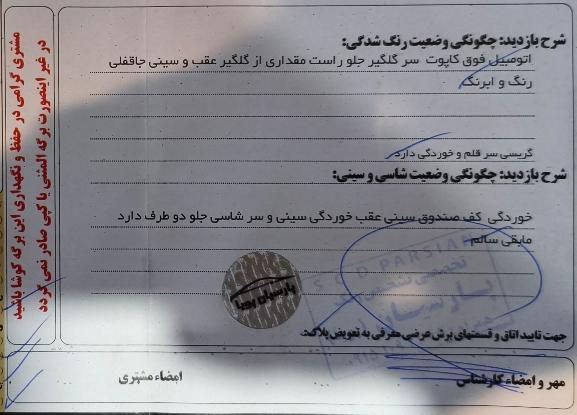 شرح بازدید: چگونگی وضعیت رنگ شدگی:
اتومبیل فوق کاپوت سر گلگیر جلو راست مقداری از گلگیر عقب و سینی جاقفلی
رنگ و ابرنگ
گریسی سر قلم و خوردگی دارد
شرح بازدید: چگونگی وضعیت شاسی و سینی:
خوردگی کف صندوق سینی عقب خوردگی سینی و سر شاسی جلو دو طرف دارد
مابقی سالم
S C D PARSIAN
تخصصی تشخیص
پارسیان
پارسیان پویا
جهت تایید اتاق و قسمتهای برش عرضی معرفی به تعویض پلاک:
مهر و امضاء کارشناس
امضاء مشتری
مشتری گرامی در حفظ و نگهداری این برگه کوشا باشید
در غیر اینصورت برگه المثنی یا کپی صادر نمی گردد